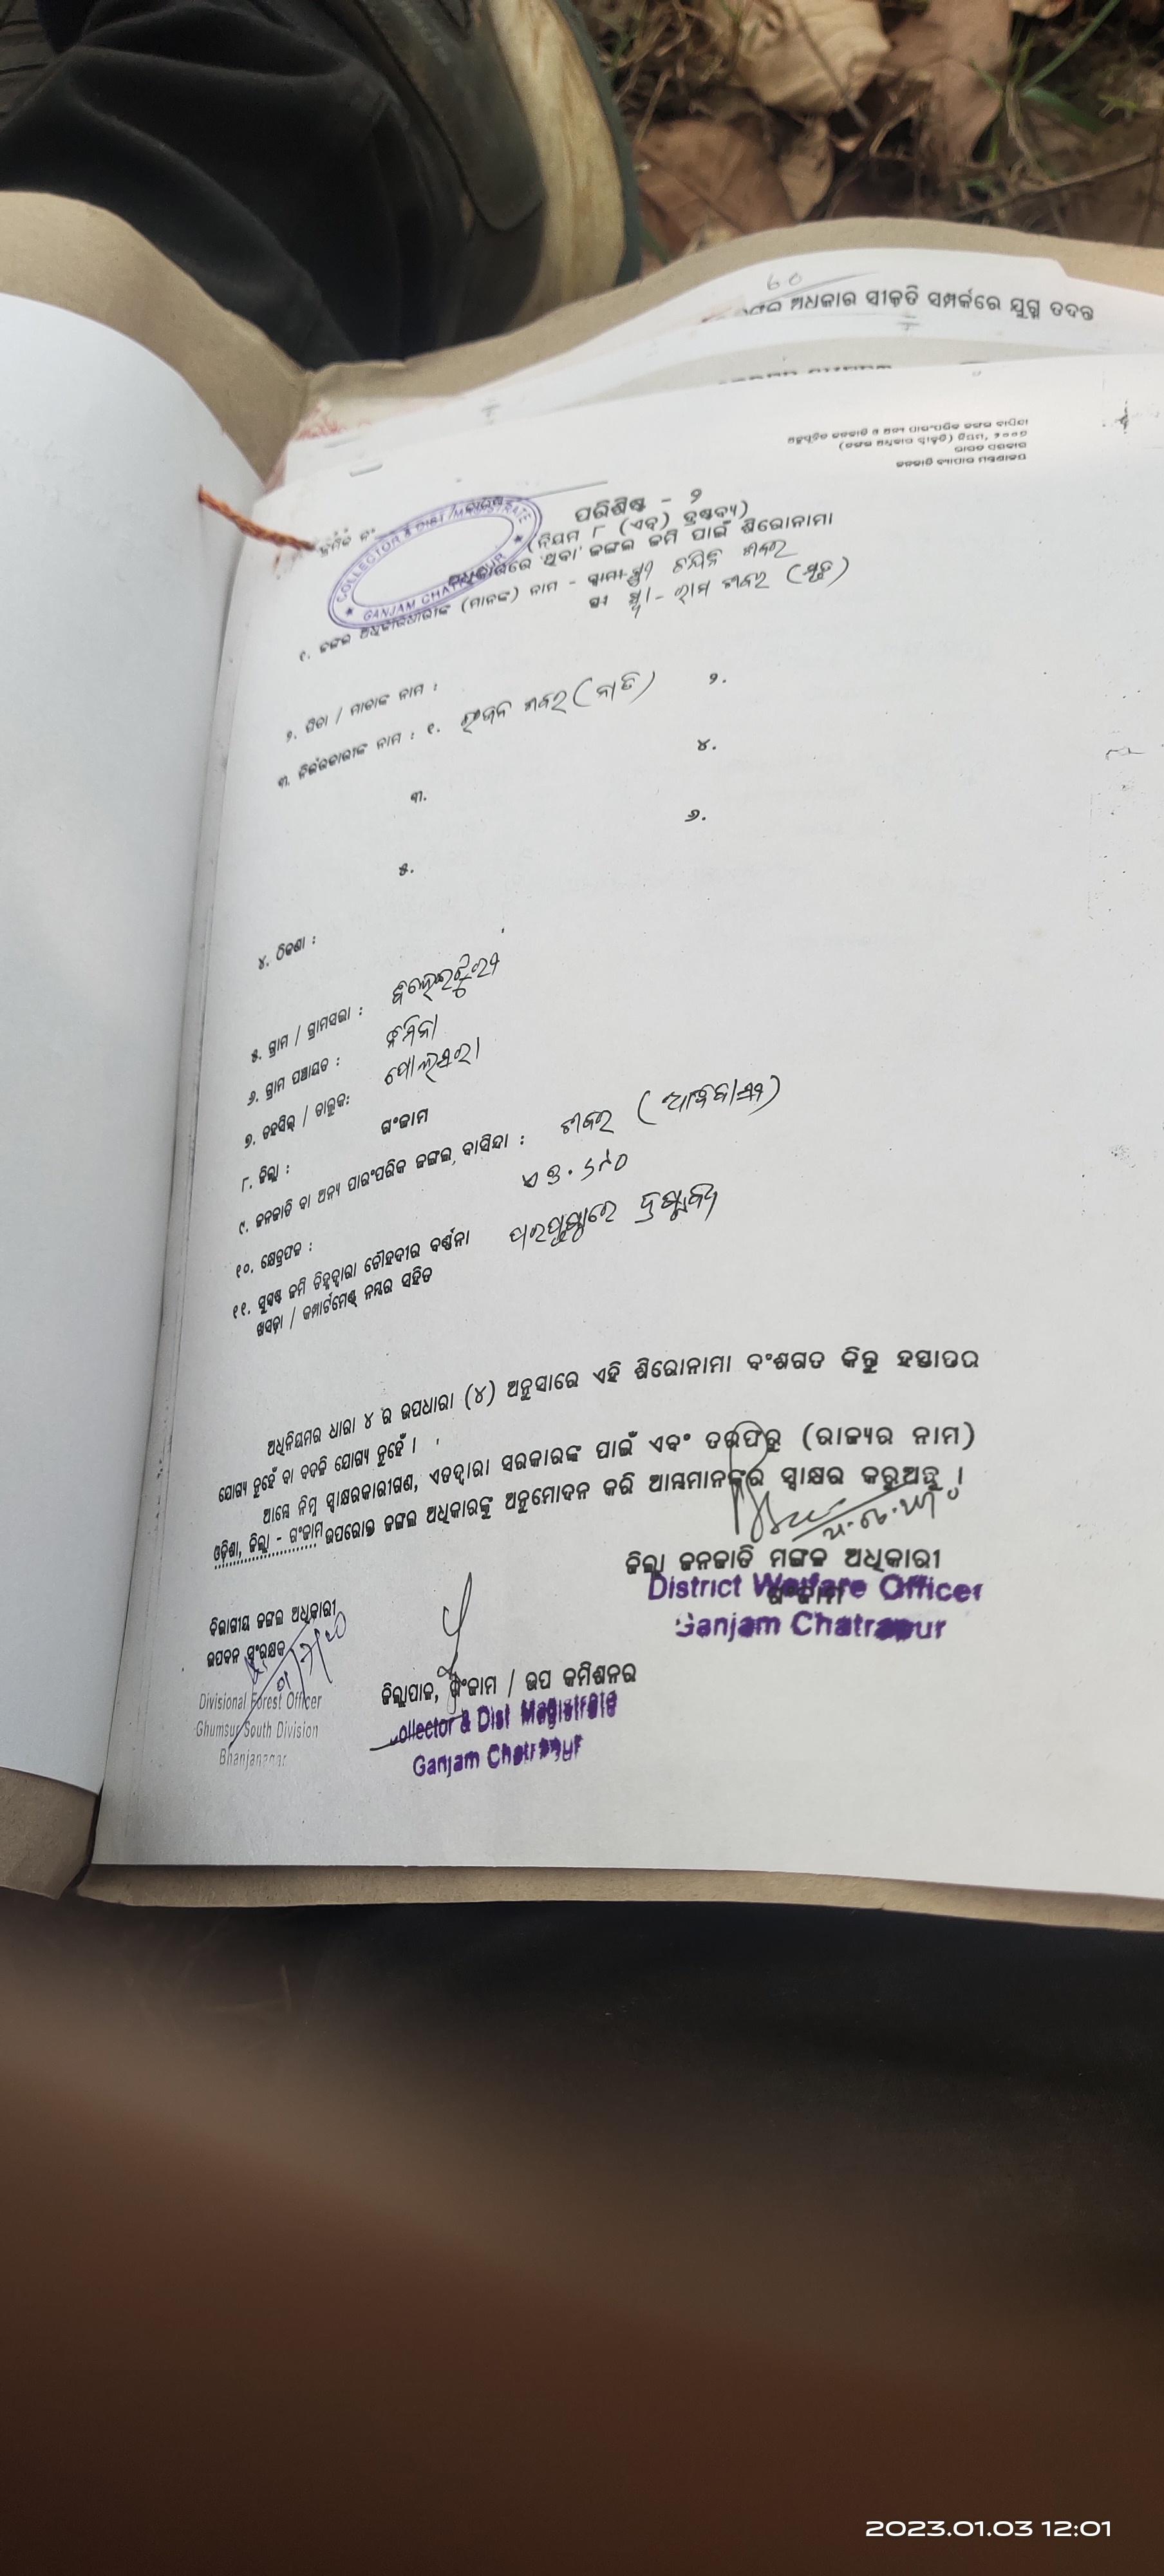 ଜଙ୍ଗଲ ଅଧିକାର ସ୍ୱୀକୃତି ସମ୍ପର୍କରେ ଯୁଗ୍ମ ତଦନ୍ତ
ଅନୁସୂଚିତ ଜନଜାତି ଓ ଅନ୍ୟ ପାରଂପରିକ ଜଙ୍ଗଲ ବାସିନ୍ଦା
(ଜଙ୍ଗଲ ଅଧିକାର ସ୍ୱୀକୃତି) ନିୟମ, ୨୦୦୭
ଭାରତ ସରକାର
ଜନଜାତି ବ୍ୟାପାର ମନ୍ତ୍ରଣାଳୟ
ପରିଶିଷ୍ଟ - ୨
(ନିୟମ ୮ (ଏଚ୍) ଦ୍ରଷ୍ଟବ୍ୟ)
COLLECTOR & DIST MAGISTRATE
GANJAM CHATRAPUR
ଅଧିକାରରେ ଥିବା ଜଙ୍ଗଲ ଜମି ପାଇଁ ଶିରୋନାମା
୧. ଜଙ୍ଗଲ ଅଧିକାରଧାରୀଙ୍କ (ମାନଙ୍କ) ନାମ - ଶବର
ରାମ ଶବର (ମୃତ)
୨. ପିତା / ମାତାଙ୍କ ନାମ :
୩. ନିର୍ଭରକାରୀଙ୍କ ନାମ : ୧. ଶବର (ନାତି) ୨.
୩. ୪.
୫. ୬.
୪. ଠିକଣା :
୫. ଗ୍ରାମ / ଗ୍ରାମସଭା :
୬. ଗ୍ରାମ ପଞ୍ଚାୟତ :
୭. ତହସିଲ୍ / ତାଲୁକ: ପୋଲସରା
୮. ଜିଲ୍ଲା : ଗଂଜାମ
୯. ଜନଜାତି ବା ଅନ୍ୟ ପାରଂପରିକ ଜଙ୍ଗଲ ବାସିନ୍ଦା : ଶବର (ଆଦିବାସୀ)
୧୦. କ୍ଷେତ୍ରଫଳ :
୧୧. ସୁସ୍ପଷ୍ଟ ଜମି ଚିହ୍ନଦ୍ୱାରା ଚୌହଦୀର ବର୍ଣ୍ଣନା ପରପୃଷ୍ଠାରେ ଦ୍ରଷ୍ଟବ୍ୟ
ଖସଡ଼ା / କମ୍ପାର୍ଟମେଣ୍ଟ ନମ୍ବର ସହିତ
ଅଧିନିୟମର ଧାରା ୪ ର ଉପଧାରା (୪) ଅନୁସାରେ ଏହି ଶିରୋନାମା ବଂଶଗତ କିନ୍ତୁ ହସ୍ତାନ୍ତର
ଯୋଗ୍ୟ ନୁହେଁ ବା ବଦଳି ଯୋଗ୍ୟ ନୁହେଁ ।
ଆମ୍ଭେ ନିମ୍ନ ସ୍ୱାକ୍ଷରକାରୀଗଣ, ଏତଦ୍ୱାରା ସରକାରଙ୍କ ପାଇଁ ଏବଂ ତରଫରୁ (ରାଜ୍ୟର ନାମ)
ଓଡ଼ିଶା, ଜିଲ୍ଲା - ଗଂଜାମ ଉପରୋକ୍ତ ଜଙ୍ଗଲ ଅଧିକାରକୁ ଅନୁମୋଦନ କରି ଆମ୍ଭମାନଙ୍କର ସ୍ୱାକ୍ଷର କରୁଅଛୁ ।
ଜିଲ୍ଲା ଜନଜାତି ମଙ୍ଗଳ ଅଧିକାରୀ
ଗଂଜାମ
District Welfare Officer
Ganjam Chatrapur
ବିଭାଗୀୟ ଜଙ୍ଗଲ ଅଧିକାରୀ
ଉପବନ ସଂରକ୍ଷକ
Divisional Forest Officer
Ghumsur South Division
Bhanjanagar
ଜିଲ୍ଲାପାଳ, ଗଂଜାମ / ଉପ କମିଶନର
Collector & Dist Magistrate
Ganjam Chatrapur
2023.01.03 12:01